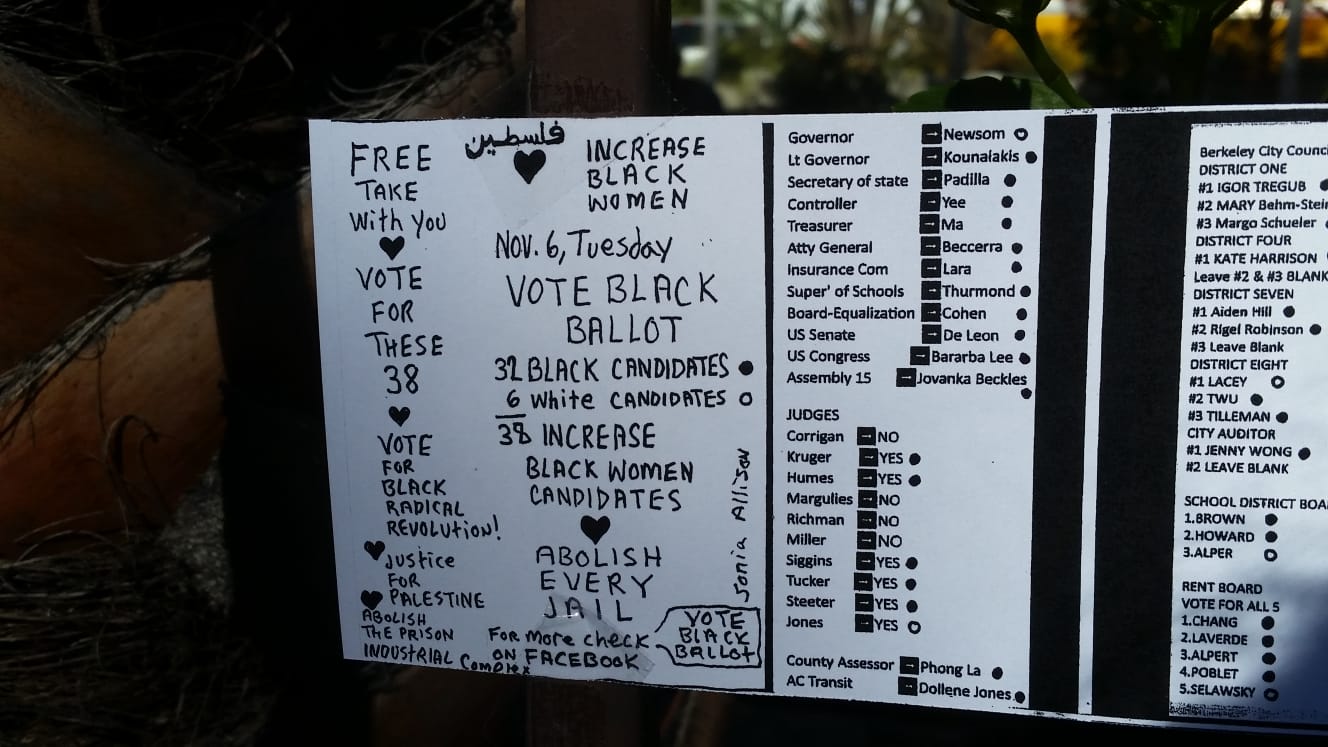 FREE
TAKE
With you
VOTE
FOR
THESE
38
VOTE
FOR
BLACK
RADICAL
REVOLUTiON!
Justice
FOR
PALESTINE
ABOLISH
THE PRISON
INDUSTRIAL Complex
فلسطين
INCREASE
BLACK
WOMEN
NOV. 6, Tuesday
VOTE BLACK
BALLOT
32 BLACK CANDIDATES
6 White CANDIDATES
38 INCREASE
BLACK WOMEN
CANDIDATES
ABOLISH
EVERY
JAIL
FOR more check
ON FACEBOOK
VOTE
BLACK
BALLOT
Sonia Allison
Governor Newsom
Lt Governor Kounalakis
Secretary of state Padilla
Controller Yee
Treasurer Ma
Atty General Beccerra
Insurance Com Lara
Super' of Schools Thurmond
Board-Equalization Cohen
US Senate De Leon
US Congress Bararba Lee
Assembly 15 Jovanka Beckles
JUDGES
Corrigan NO
Kruger YES
Humes YES
Margulies NO
Richman NO
Miller NO
Siggins YES
Tucker YES
Steeter YES
Jones YES
County Assessor Phong La
AC Transit Dollene Jones
Berkeley City Counci
DISTRICT ONE
#1 IGOR TREGUB
#2 MARY Behm-Stei
#3 Margo Schueler
DISTRICT FOUR
#1 KATE HARRISON
Leave #2 & #3 BLANK
DISTRICT SEVEN
#1 Aiden Hill
#2 Rigel Robinson
#3 Leave Blank
DISTRICT EIGHT
#1 LACEY
#2 TWU
#3 TILLEMAN
CITY AUDITOR
#1 JENNY WONG
#2 LEAVE BLANK
SCHOOL DISTRICT BOA
1.BROWN
2.HOWARD
3.ALPER
RENT BOARD
VOTE FOR ALL 5
1.CHANG
2.LAVERDE
3.ALPERT
4.POBLET
5.SELAWSKY